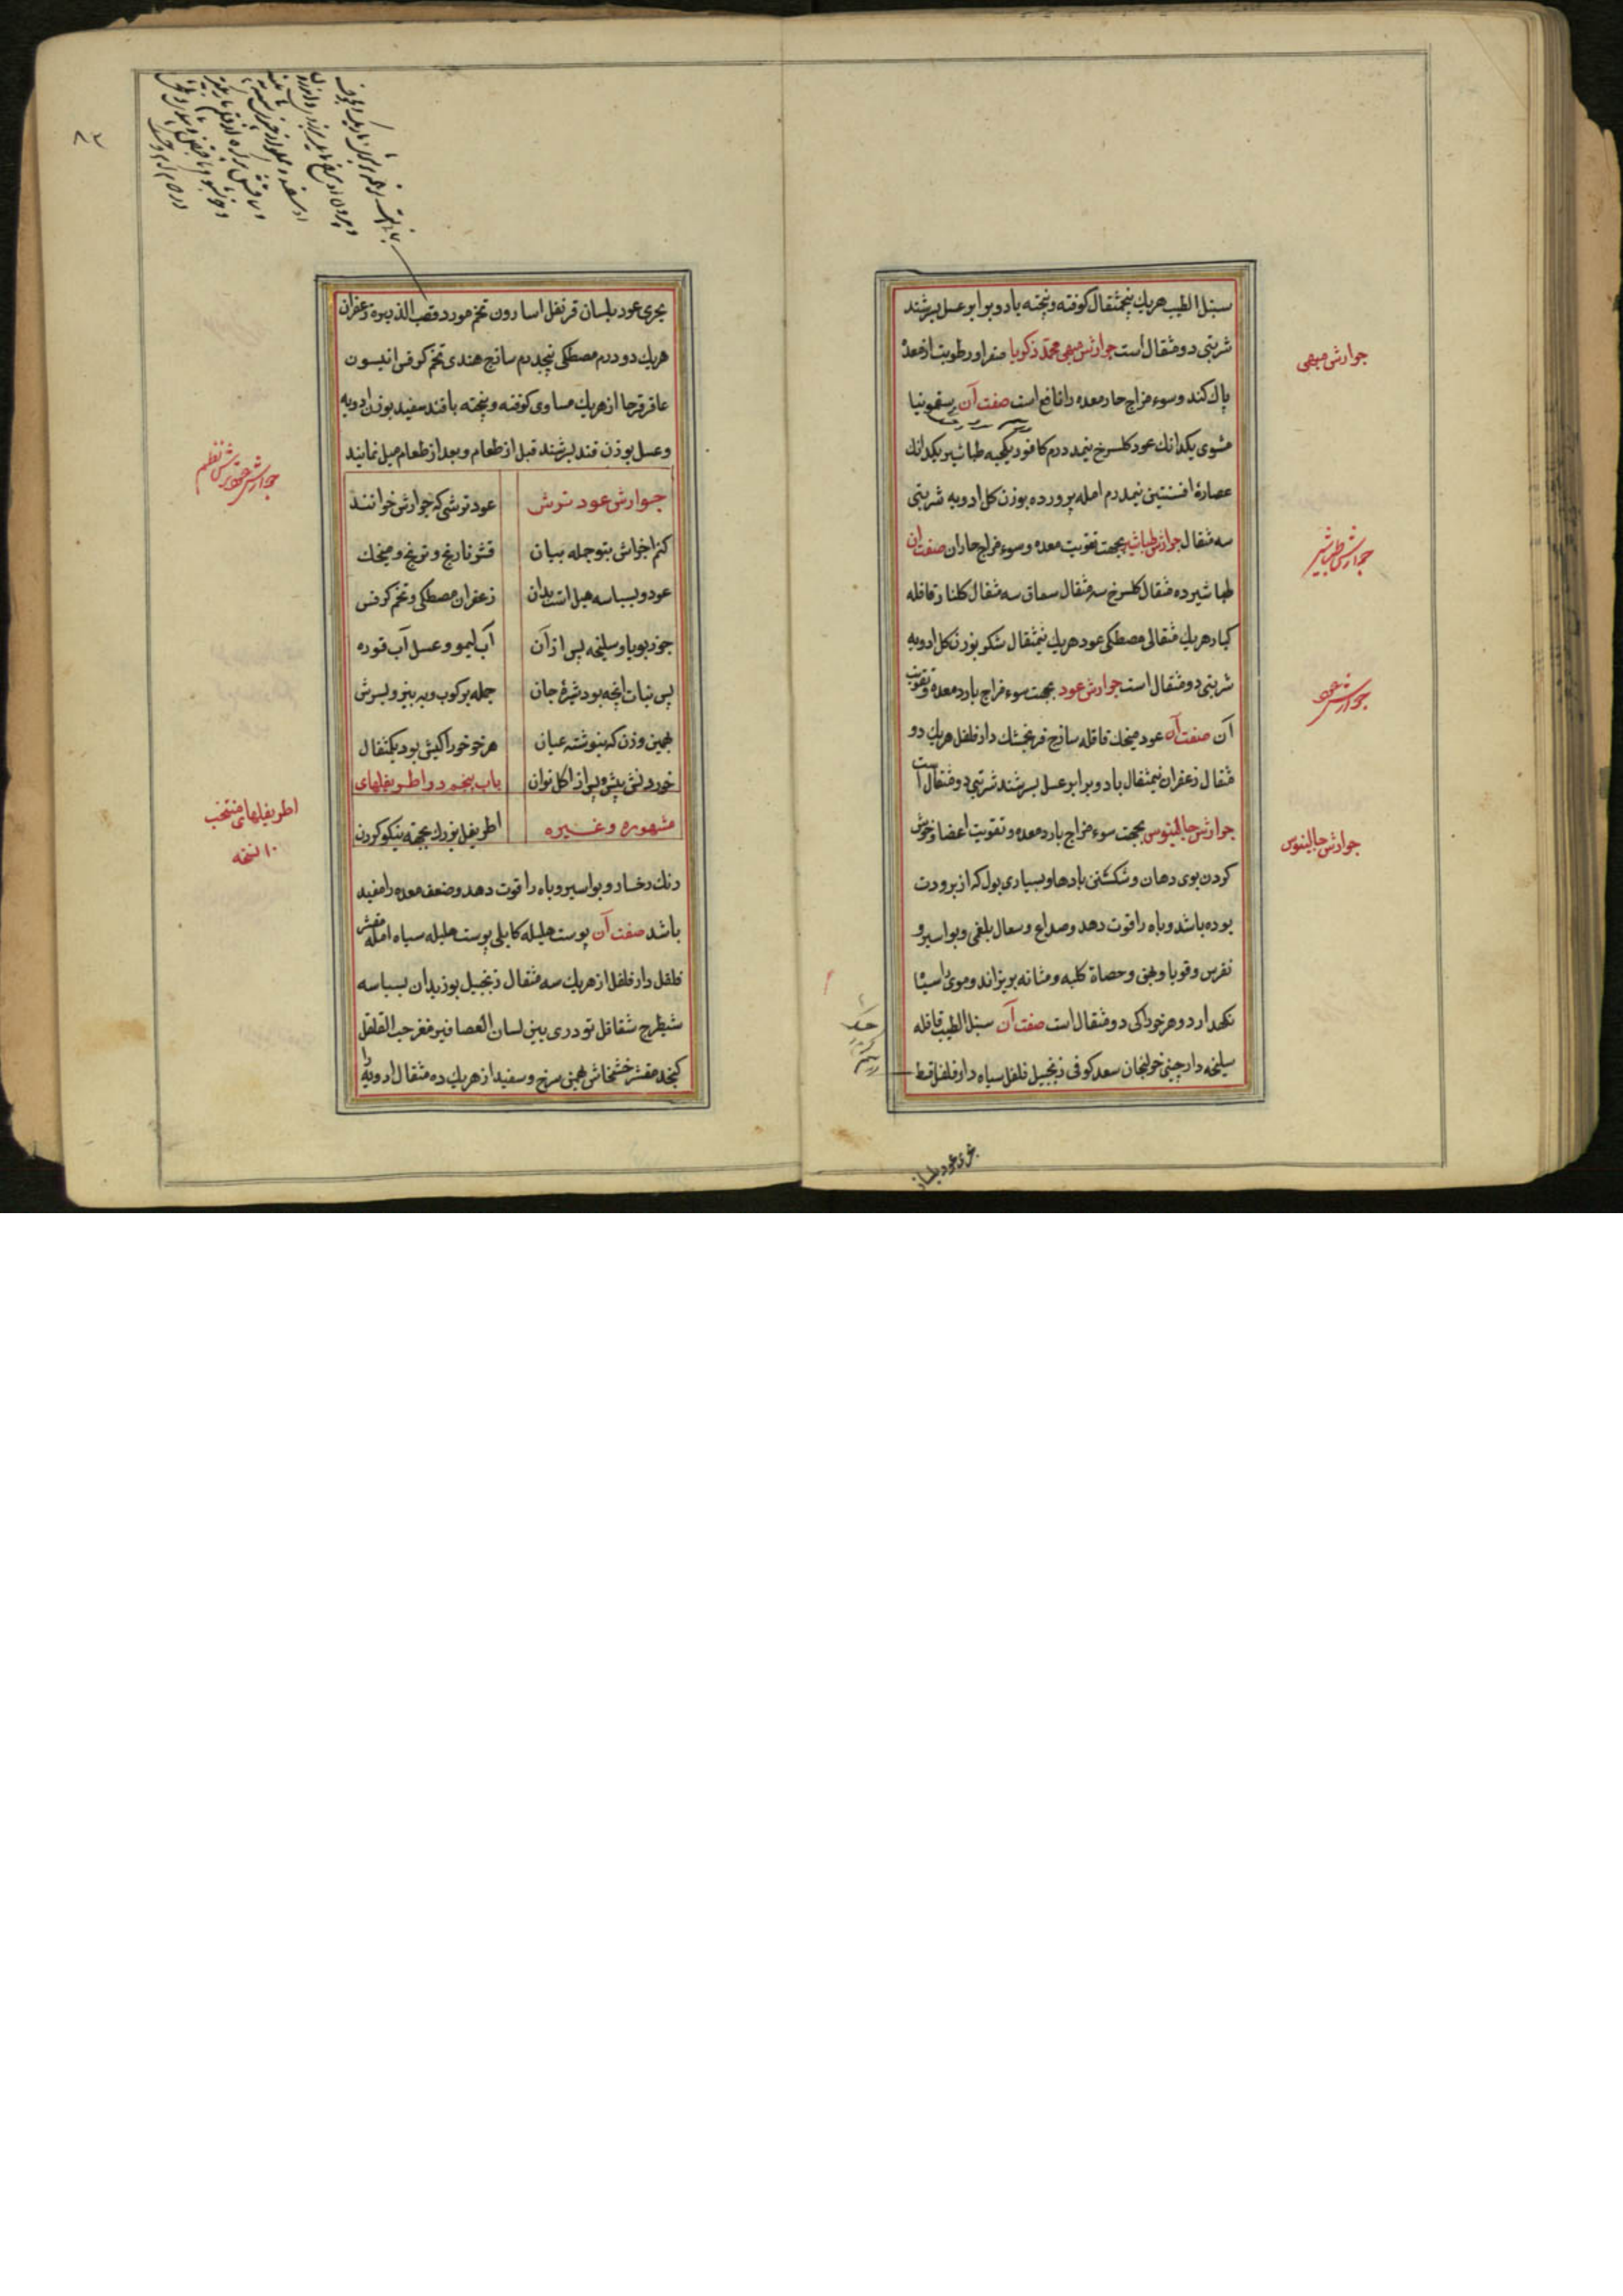 سنبل الطیب هریك پنجمثقال كوفته و پخته با دو برابر عسل بسرشند
شربتی دو مثقال است جوارش مبهی محمد زكریا صفرا و رطوبت از معده
پاك كند و سوء مزاج حار معده را نافع است صفت آن سقمونیا
مشوی یكدانك عود كلسرخ نیمدرم كافور یكحبه طباشیر یكدانك
عصارهٔ افسنتین نیمدرم امله پرورده بوزن كل ادویه شربتی
سه مثقال جوارش طباشیر بجهت تقویت معده و سوء مزاج حار ان صفت ان
طباشیر ده مثقال كلسرخ سه مثقال سماق سه مثقال كلنار قاقله
كبار هریك مثقالی مصطكی عود هریك نیمثقال شكر بوزن كل ادویه
شربتی دو مثقال است جوارش عود بجهت سوء مزاج بارد معده و تقویت
آن صفت آن عود میخك قاقله ساذج فرنجمشك دارفلفل هریك دو
مثقال زعفران نیمثقال با دو برابر عسل بسرشند شربتی دو مثقال است
جوارش جالینوس بجهت سوء مزاج بارد معده و تقویت اعضا و خوش
كردن بوی دهان و شكستن بادها و بسیاری بول كه از برودت
بوده باشد و باه را قوت دهد و صداع و سعال بلغمی و بواسیر و
نقرس و قوبا و بهق و حصاة كلیه و مثانه بریزاند و موی را سیاه
نكهدارد و هر خوراكی دو مثقال است صفت آن سنبل الطیب قاقله
سلیخه دارچینی خولنجان سعد كوفی زنجبیل فلفل سیاه دارفلفل قسط
جوارش مبهی
جوارش طباشیر
جوارش عود
جوارش جالینوس
۸۲
بحری عود بلسان قرنفل اسارون تخم مورد قصب الذریره زعفران
هریك دو درم مصطكی پنجدرم ساذج هندی تخم كرفس انیسون
عاقرقرحا از هریك مساوی كوفته و پخته با قند سفید بوزن ادویه
و عسل بوزن قند بسرشند قبل از طعام و بعد از طعام میل نمایند
جوارش عود ترش عود ترشی كه جوارش خوانند
كنم اجزاش بتو جمله بیان قشر نارنج و ترنج و میخك
عود و بسباسه هیل است بدان زعفران مصطكی و تخم كرفس
جوز بویا و سلیخه پس از آن آب لیمو و عسل آب قوره
پس نبات انچه بود شیرهٔ جان جمله بركوب و به بیز و بسرش
بهمین وزن كه بنوشته عیان هر خوراكیش بود یكمثقال
خوردنش پیش و پس از اكل توان باب پنجم در اطریفلهای
مشهوره و غیره اطریفل بزرك بجهة نیكو كردن
رنك رخسار و بواسیر و باه را قوت دهد و ضعف معده را مفید
باشد صفت آن پوست هلیله كابلی پوست هلیله سیاه امله مقشر
فلفل دارفلفل از هریك سه مثقال زنجبیل بوزیدان بسباسه
شیطرج شقاقل تودری بین لسان العصافیر مغز حب القلقل
كنجد مقشر خشخاش بهمن سرخ و سفید از هریك ده مثقال ادویه را
اطریفلهای منتخب
۱۰ نسخه